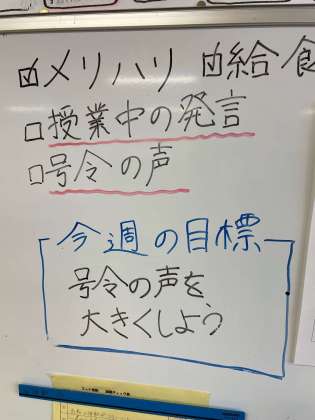 ☑メリハリ ☑給食
□授業中の発言
□号令の声
今週の目標
号令の声を
大きくしよう